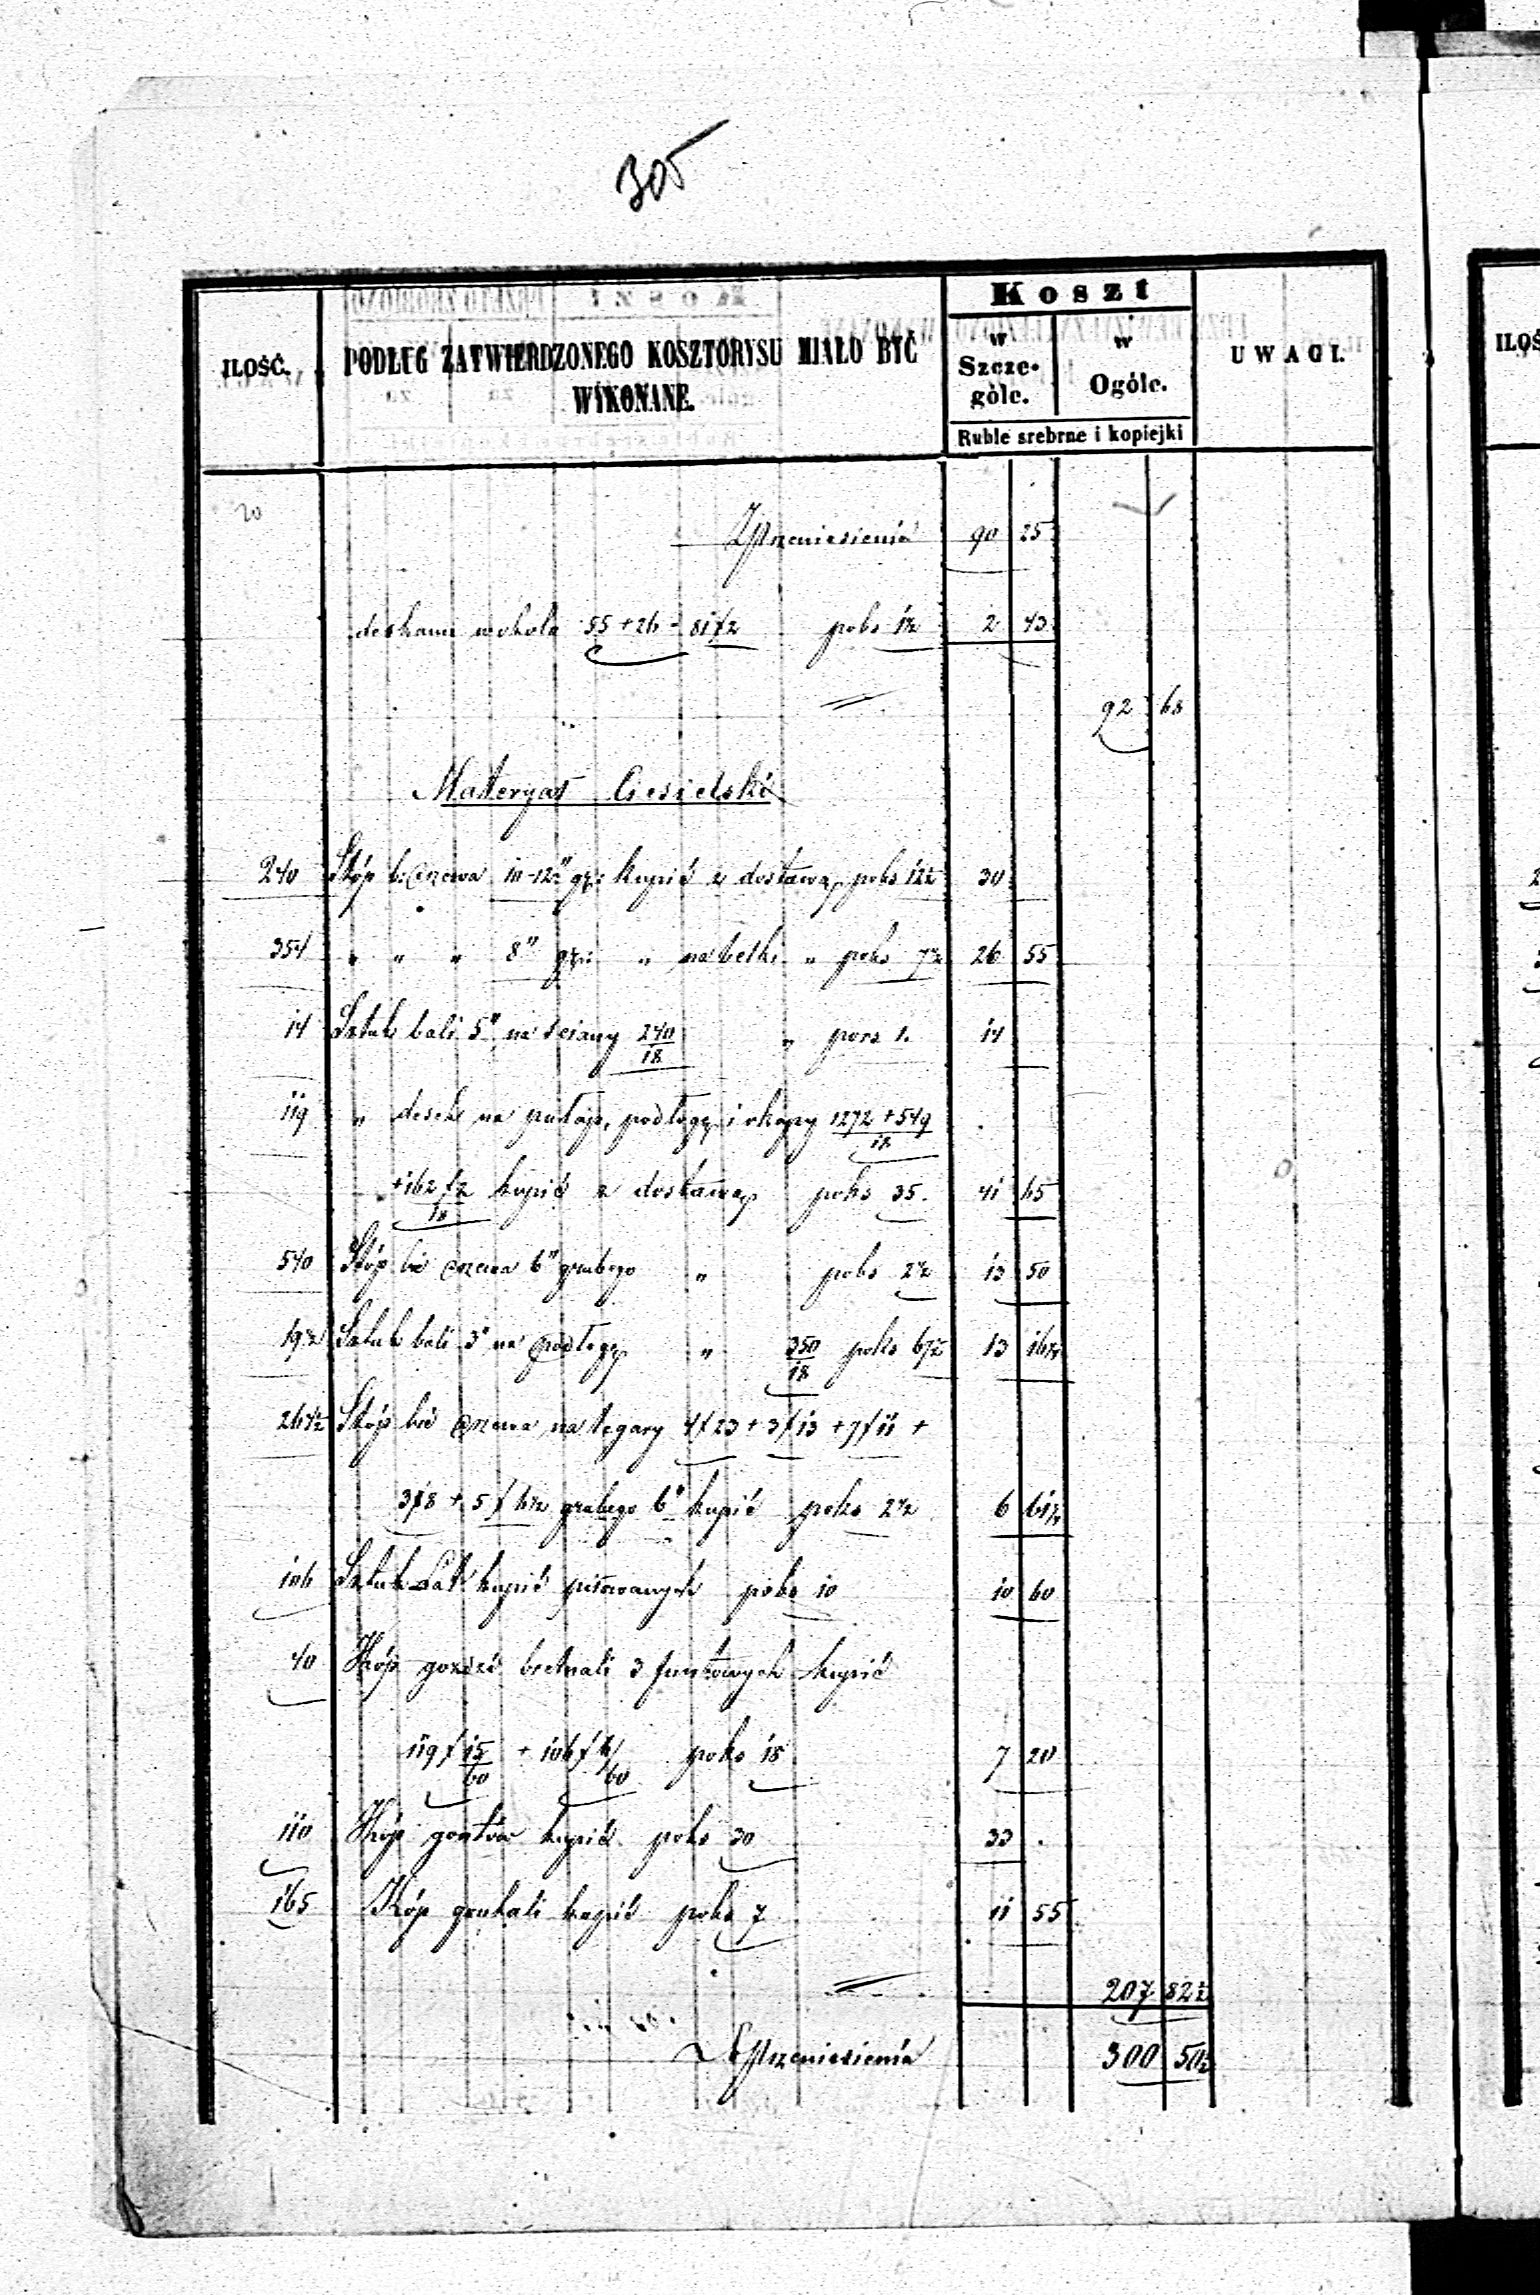 305
Koszt
ILOŚĆ. PODŁUG ZATWIERDZONEGO KOSZTORYSU MIAŁO BYĆ WYKONANE. w Szcze- góle. w Ogóle. UWAGI.
Ruble srebrne i kopiejki
20
Z Przeniesienia 90 25
deskami wokoło 55 + 26 = 81 f 2 poko 1½ 2 43
92 68
Materyał Ciesielski
240 Stóp b: drzewa 10-12" gr: kupić z dostawą poko 12½ 30
354 " " " 8" gr: " na belki " poko 7½ 26 55
14 Sztuk bali 5" na ściany 240/18 " pors 1. 14
119 " desek na pułap, podłogę i okapy 1272 + 549/18
+ 162 f 2/18 kupić z dostawą poko 35. 41 65
540 Stóp bie drzewa 6" grubego " poko 2½ 13 50
19½ Sztuk bali 3" na podłogę " 350/18 poko 67½ 13 16¼
264½ Stóp bie drzewa na legary 4 f 23 + 3 f 13 + 7 f 11 +
3 f 8 + 5 f 6½ grubego 6" kupić poko 2½ 6 61¼
106 Sztuk Łat kupić piłowanych poko 10 10 60
40 Kóp goździ bretnali 3 funtowych kupić
119 f 15/60 + 106 f 6/60 poko 18 7 20
110 Kóp gontów kupić poko 30 33 .
165 Kóp gontali kupić poko 7 11 55
207 82½
Do Przeniesienia 300 50½
ILOŚ